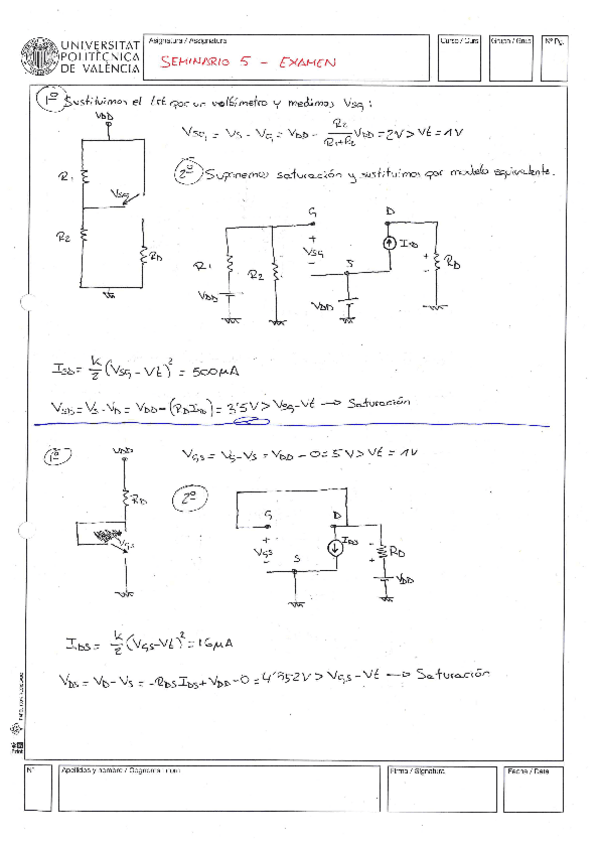 UNIVERSITAT
POLITÈCNICA
DE VALÈNCIA
Asignatura / Assignatura
SEMINARIO 5 - EXAMEN
Curso / Curs
Grupo / Grup
Nº Pg.
1º Sustituimos el Tst por un voltímetro y medimos VSG :
VDD
VSG = VS - VG = VDD - R2/(R1+R2) VDD = 2V > Vt = 1V
2º Suponemos saturación y sustituimos por modelo equivalente.
R1
VSG
R2
RD
G
D
+
VSG
-
S
ISD
+
-
RD
R1
R2
VDD
VDD
ISD = K/2 (VSG - Vt)² = 500μA
VSD = VS - VD = VDD - (RD ISD) = 3'5V > VSG - Vt → Saturación
1º
VDD
VGS = VG - VS = VDD - 0 = 5V > Vt = 1V
RD
2º
VGS
G
D
+
VGS
-
S
IDS
-
+
RD
VDD
IDS = K/2 (VGS - Vt)² = 16μA
VDS = VD - VS = -RDS IDS + VDD - 0 = 4'952V > VGS - Vt → Saturación
Nº
Apellidos y nombre / Cognoms i nom
Firma / Signatura
Fecha / Data